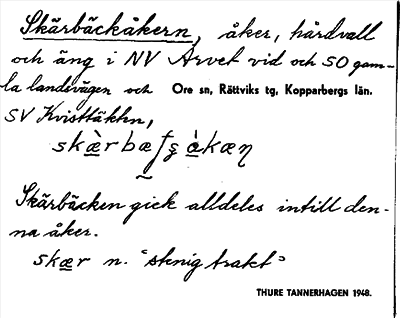 Skärbäckåkern, åker, hårdvall
och äng i NV Arvet vid och SO gam-
la landsvägen och Ore sn, Rättviks tg, Kopparbergs län.
SV Kvisttäkten,
Skärbäcken gick alldeles intill den-
na åker.
skær n. "stenig trakt"
THURE TANNERHAGEN 1948.